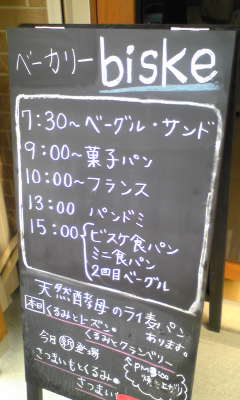 ベーカリー biske
7:30〜ベーグル・サンド
9:00〜菓子パン
10:00〜フランス
13:00 パンドミ
15:00 ビスケ食パン
ミニ食パン
2回目ベーグル
天然酵母のライ麦パン
あります。
くるみとレーズン。
くるみとクランベリー
今月 新 登場
さつまいもとくるみ。
さつまいも
焼き上がり